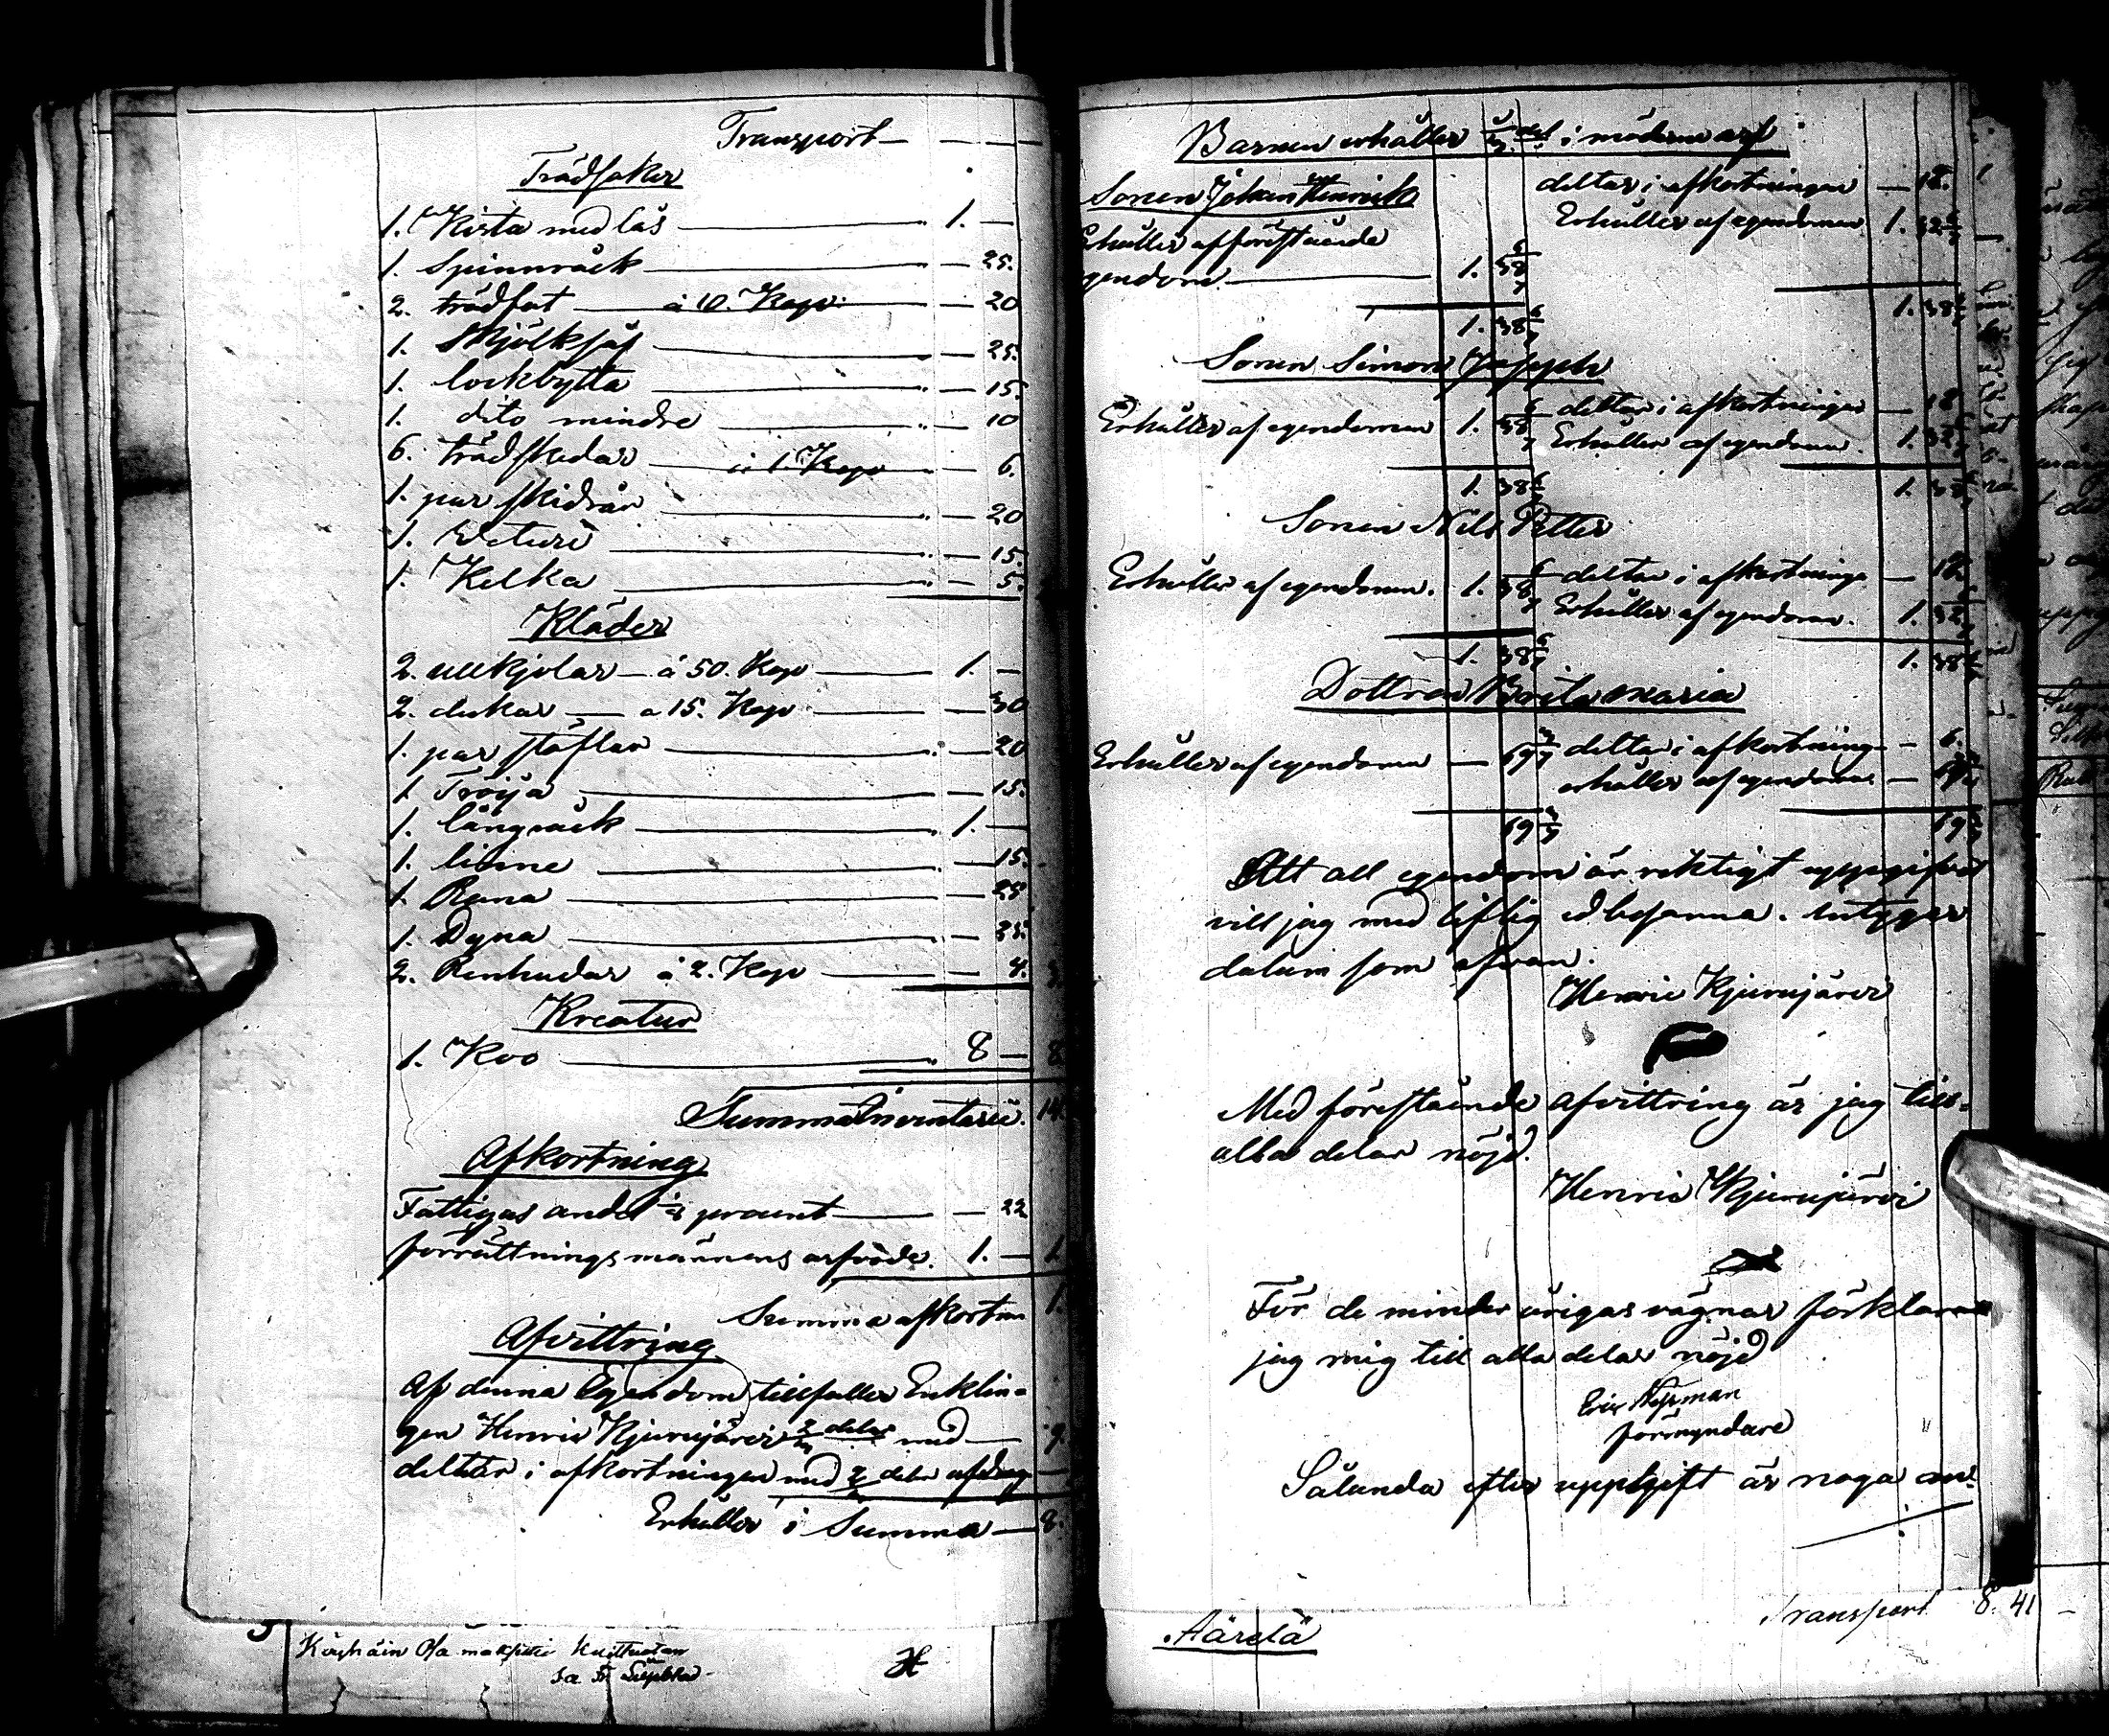 Transport —
Trädsaker
1. Kista med lås — 1. —
1. Spinnråck — 25.
2. trädfat — à 10. Kop: — 20
1. Mjölksåj — 25.
1. lockbytta — 15.
1. dito mindre — 10
6. trädskedar — à 1. Kop — 6.
1. par skidrår — 20
1. — 15.
1. Kelka — 5.
Kläder
2. ullkjolar — à 50. Kop — 1. —
2. dukar — a 15. Kop — 30
1. par stöflar — 20
1 Tröija — 15.
1. långråck — 1. —
1. linne — 15.
1. Rana — 25
1. Dyna — 25.
2. Renhudar à 2. Kop — 4.
Kreatur
1. Koo — 8 —
Summa Inventarie. 14.
Afkortning
Fattigas andel procent — 22
förrättningsmännens arfvode. 1. —
Summa afkortn
Afvittring
Af denna Egendom tillfaller Enklin-
gen Henric Kjurujärvi delar med — 9.
deltar i afkortningen med delar afdrag —
Erhåller i Summa — 8.
Kuittuotan
H
Barnen erhåller del i möderne arf
Sonen Johan Henrik
deltar i afkortningen — 18.
Erhåller af egendomen 1. 32 6/7
Erhåller af förestående
gendom — 1. 58 6/7
1. 38 6/7
1. 38 6/7
Sonen Simon Joseph
Erhåller af egendomen 1. 58 6/7 deltar i afkortningen — 18
Erhåller af egendomen. 1. 32 6/7
1. 38 6/7
1. 38 6/7
Sonen Nils Petter
Erhåller af egendomen. 1. 58 6/7 deltar i afkortninge — 18
Erhåller af egendomen. 1. 32 6/7
1. 38 6/7
1. 38 6/7
Dottren Brita Maria
Erhåller af egendomen — 69 3/7 deltar i afkortning — 6.
erhåller af egendomen —
69 3/7
69 3/7
Att all egendom är riktigt uppgifvet
vill jag med liflig ed besanna. intygar
datum som ofvan.
Henric Kjurujärvi
Med förestående afvittring är jag till-
alla delar nöjd.
Henric Kjurujärvi
För de minder årigas vägnar förklarar
jag mig till alla delar nöjd
Eric
förmyndare
Sålunda efter uppgift är noga an-
Transport 8. 41 —
Äärelä